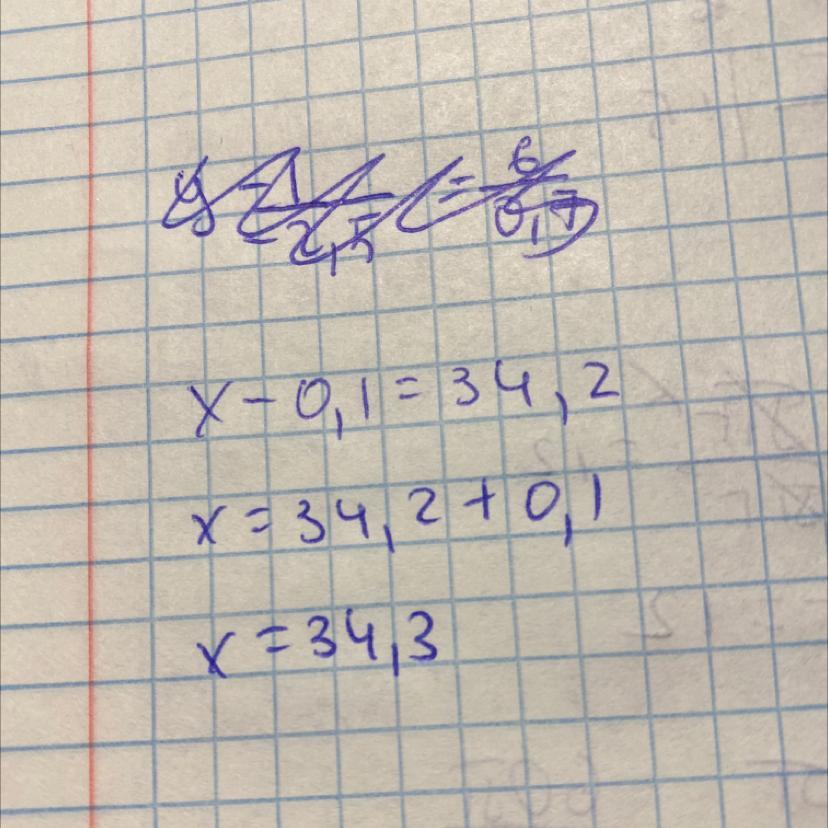 x - 0,1 = 34,2
x = 34,2 + 0,1
x = 34,3